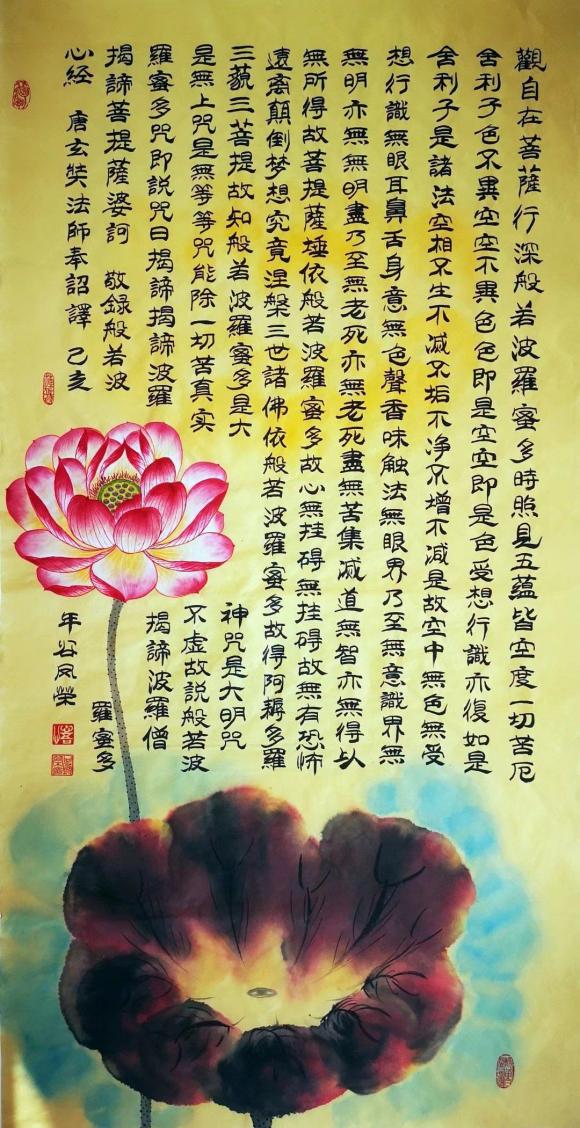 觀自在菩薩行深般若波羅蜜多時照見五蘊皆空度一切苦厄
舍利子色不異空空不異色色即是空空即是色受想行識亦復如是
舍利子是諸法空相不生不滅不垢不净不增不減是故空中無色無受
想行識無眼耳鼻舌身意無色聲香味触法無眼界乃至無意識界無
無明亦無無明盡乃至無老死亦無老死盡無苦集滅道無智亦無得以
無所得故菩提薩埵依般若波羅蜜多故心無挂碍無挂碍故無有恐怖
遠离顛倒梦想究竟涅槃三世諸佛依般若波羅蜜多故得阿耨多羅
三藐三菩提故知般若波羅蜜多是大
神咒是大明咒
是無上咒是無等等咒能除一切苦真实
不虚故説般若波
羅蜜多咒即説咒曰揭諦揭諦波羅
揭諦波羅僧
揭諦菩提薩婆訶 敬録般若波
羅蜜多
心経 唐玄奘法師奉詔譯 己亥
年谷凤榮